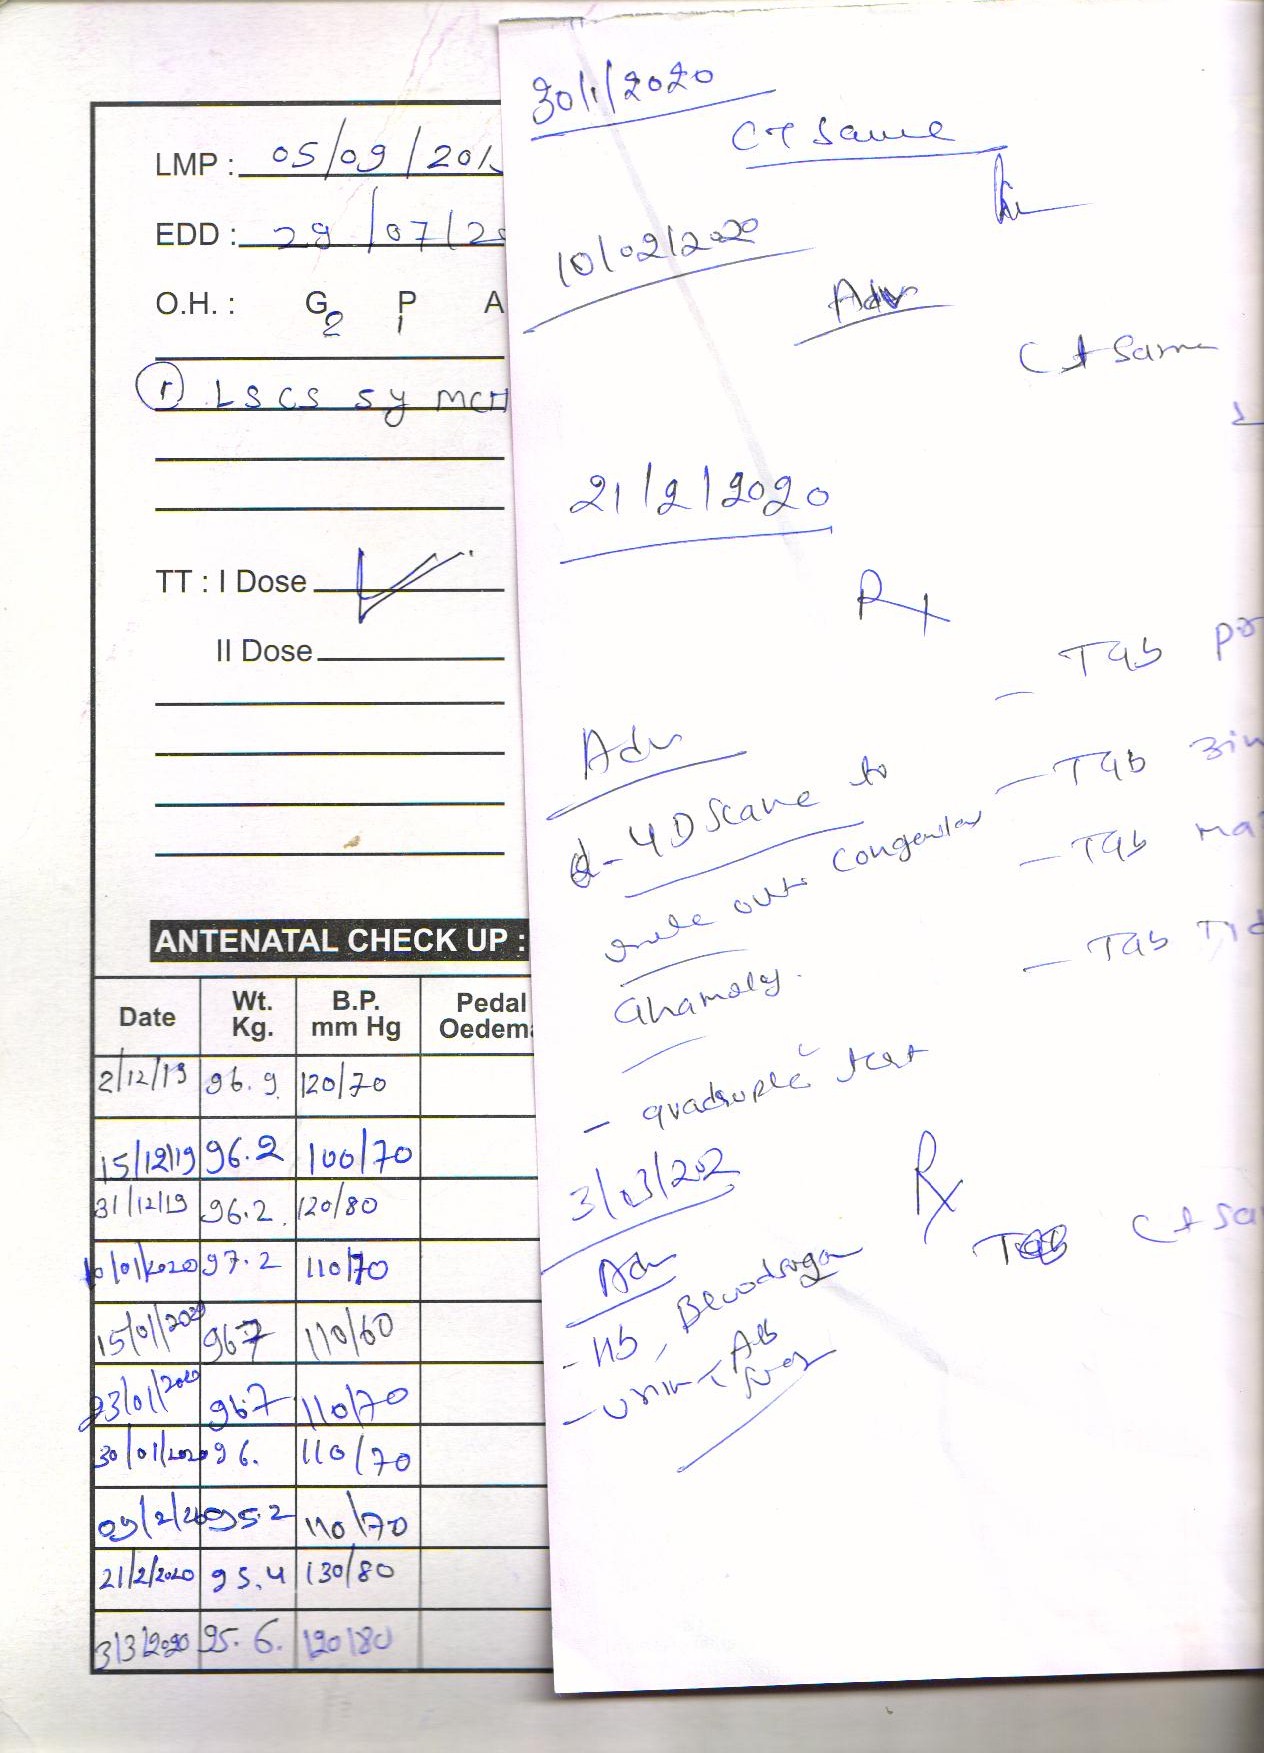 LMP : 05/09/201
EDD : 29/07/2
O.H. : G2 P1 A
① LSCS 5y MCH
TT : I Dose ✓
II Dose
ANTENATAL CHECK UP :
Date Wt. Kg. B.P. mm Hg Pedal Oedema
2/12/19 96.9 120/70
15/12/19 96.2 100/70
31/12/19 96.2 120/80
10/01/2020 97.2 110/70
15/01/2020 96.7 110/60
23/01/2020 96.7 110/70
30/01/2020 96. 110/70
09/2/20 95.2 110/70
21/2/2020 95.4 130/80
3/3/2020 95.6. 120/80
30/1/2020
CT Same
10/02/2020
Adv
Ct Same
21/2/2020
Rx
- Tab
Adv
- Tab
- 4D Scane to
- Tab
rule out congenital
- Tab
anamoly.
- quadruple test
3/03/202
Rx
Adv
Tab Ct Sa
- Hb, Blood sugar
- Urine Alb
Sugar